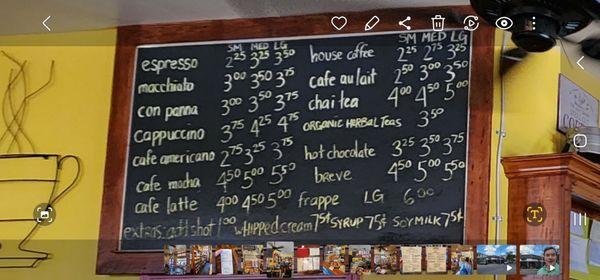 SM MED LG
espresso 2²⁵ 3²⁵ 3⁵⁰
macchiato 3⁰⁰ 3⁵⁰ 3⁷⁵
con panna 3⁰⁰ 3⁵⁰ 3⁷⁵
cappuccino 3⁷⁵ 4²⁵ 4⁷⁵
cafe americano 2⁷⁵ 3²⁵ 3⁷⁵
cafe mocha 4⁵⁰ 5⁰⁰ 5⁵⁰
cafe latte 4⁰⁰ 4⁵⁰ 5⁰⁰
SM MED LG
house coffee 2²⁵ 2⁷⁵ 3²⁵
cafe au lait 2⁵⁰ 3⁰⁰ 3⁵⁰
chai tea 4⁰⁰ 4⁵⁰ 5⁰⁰
ORGANIC HERBAL Teas 3⁵⁰
hot chocolate 3²⁵ 3⁵⁰ 3⁷⁵
breve 4⁵⁰ 5⁰⁰ 5⁵⁰
frappe LG 6⁰⁰
extras: add shot 1⁰⁰ WHIPPED cream 75¢ SYRUP 75¢ SOY MILK 75¢